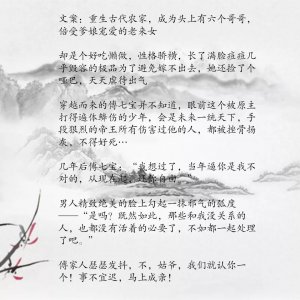 文案：重生古代农家，成为头上有六个哥哥，
倍受爹娘宠爱的老来女
却是个好吃懒做，性格骄横，长了满脸痘痘几
乎毁容的极品为了避免嫁不出去，她还捡了个
哑巴，天天虐待出气
穿越而来的傅七宝并不知道，眼前这个被原主
打得遍体鳞伤的少年，会是未来一统天下，手
段狠烈的帝王所有伤害过他的人，都被挫骨扬
灰，不得好死…
几年后傅七宝：“我想过了，当年逼你是我不
对的，从现在起，还你自由
男人精致绝美的脸上勾起一抹邪气的弧度
——“是吗？既然如此，那些和我没关系的
人，也都没有活着的必要了，不如都一起处理
了吧。”
傅家人瑟瑟发抖，不，姑爷，我们就认你一
个！事不宜迟，马上成亲！